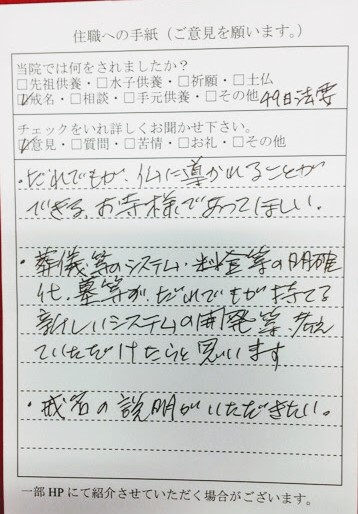 住職への手紙（ご意見を願います。）
当院では何をされましたか？
□先祖供養・□水子供養・□祈願・□土仏
☑戒名・□相談・□手元供養・□その他 49日法要
チェックをいれ詳しくお聞かせ下さい。
☑意見・□質問・□苦情・□お礼・□その他
・だれでもが、仏に導かれることが
できる、お寺様であってほしい。
・葬儀等のシステム・料金等の明確
化、墓等が、だれでもが持てる
新しいシステムの開発等、考え
ていただけたらと思います
・戒名の説明がいただきたい。
一部HPにて紹介させていただく場合がございます。